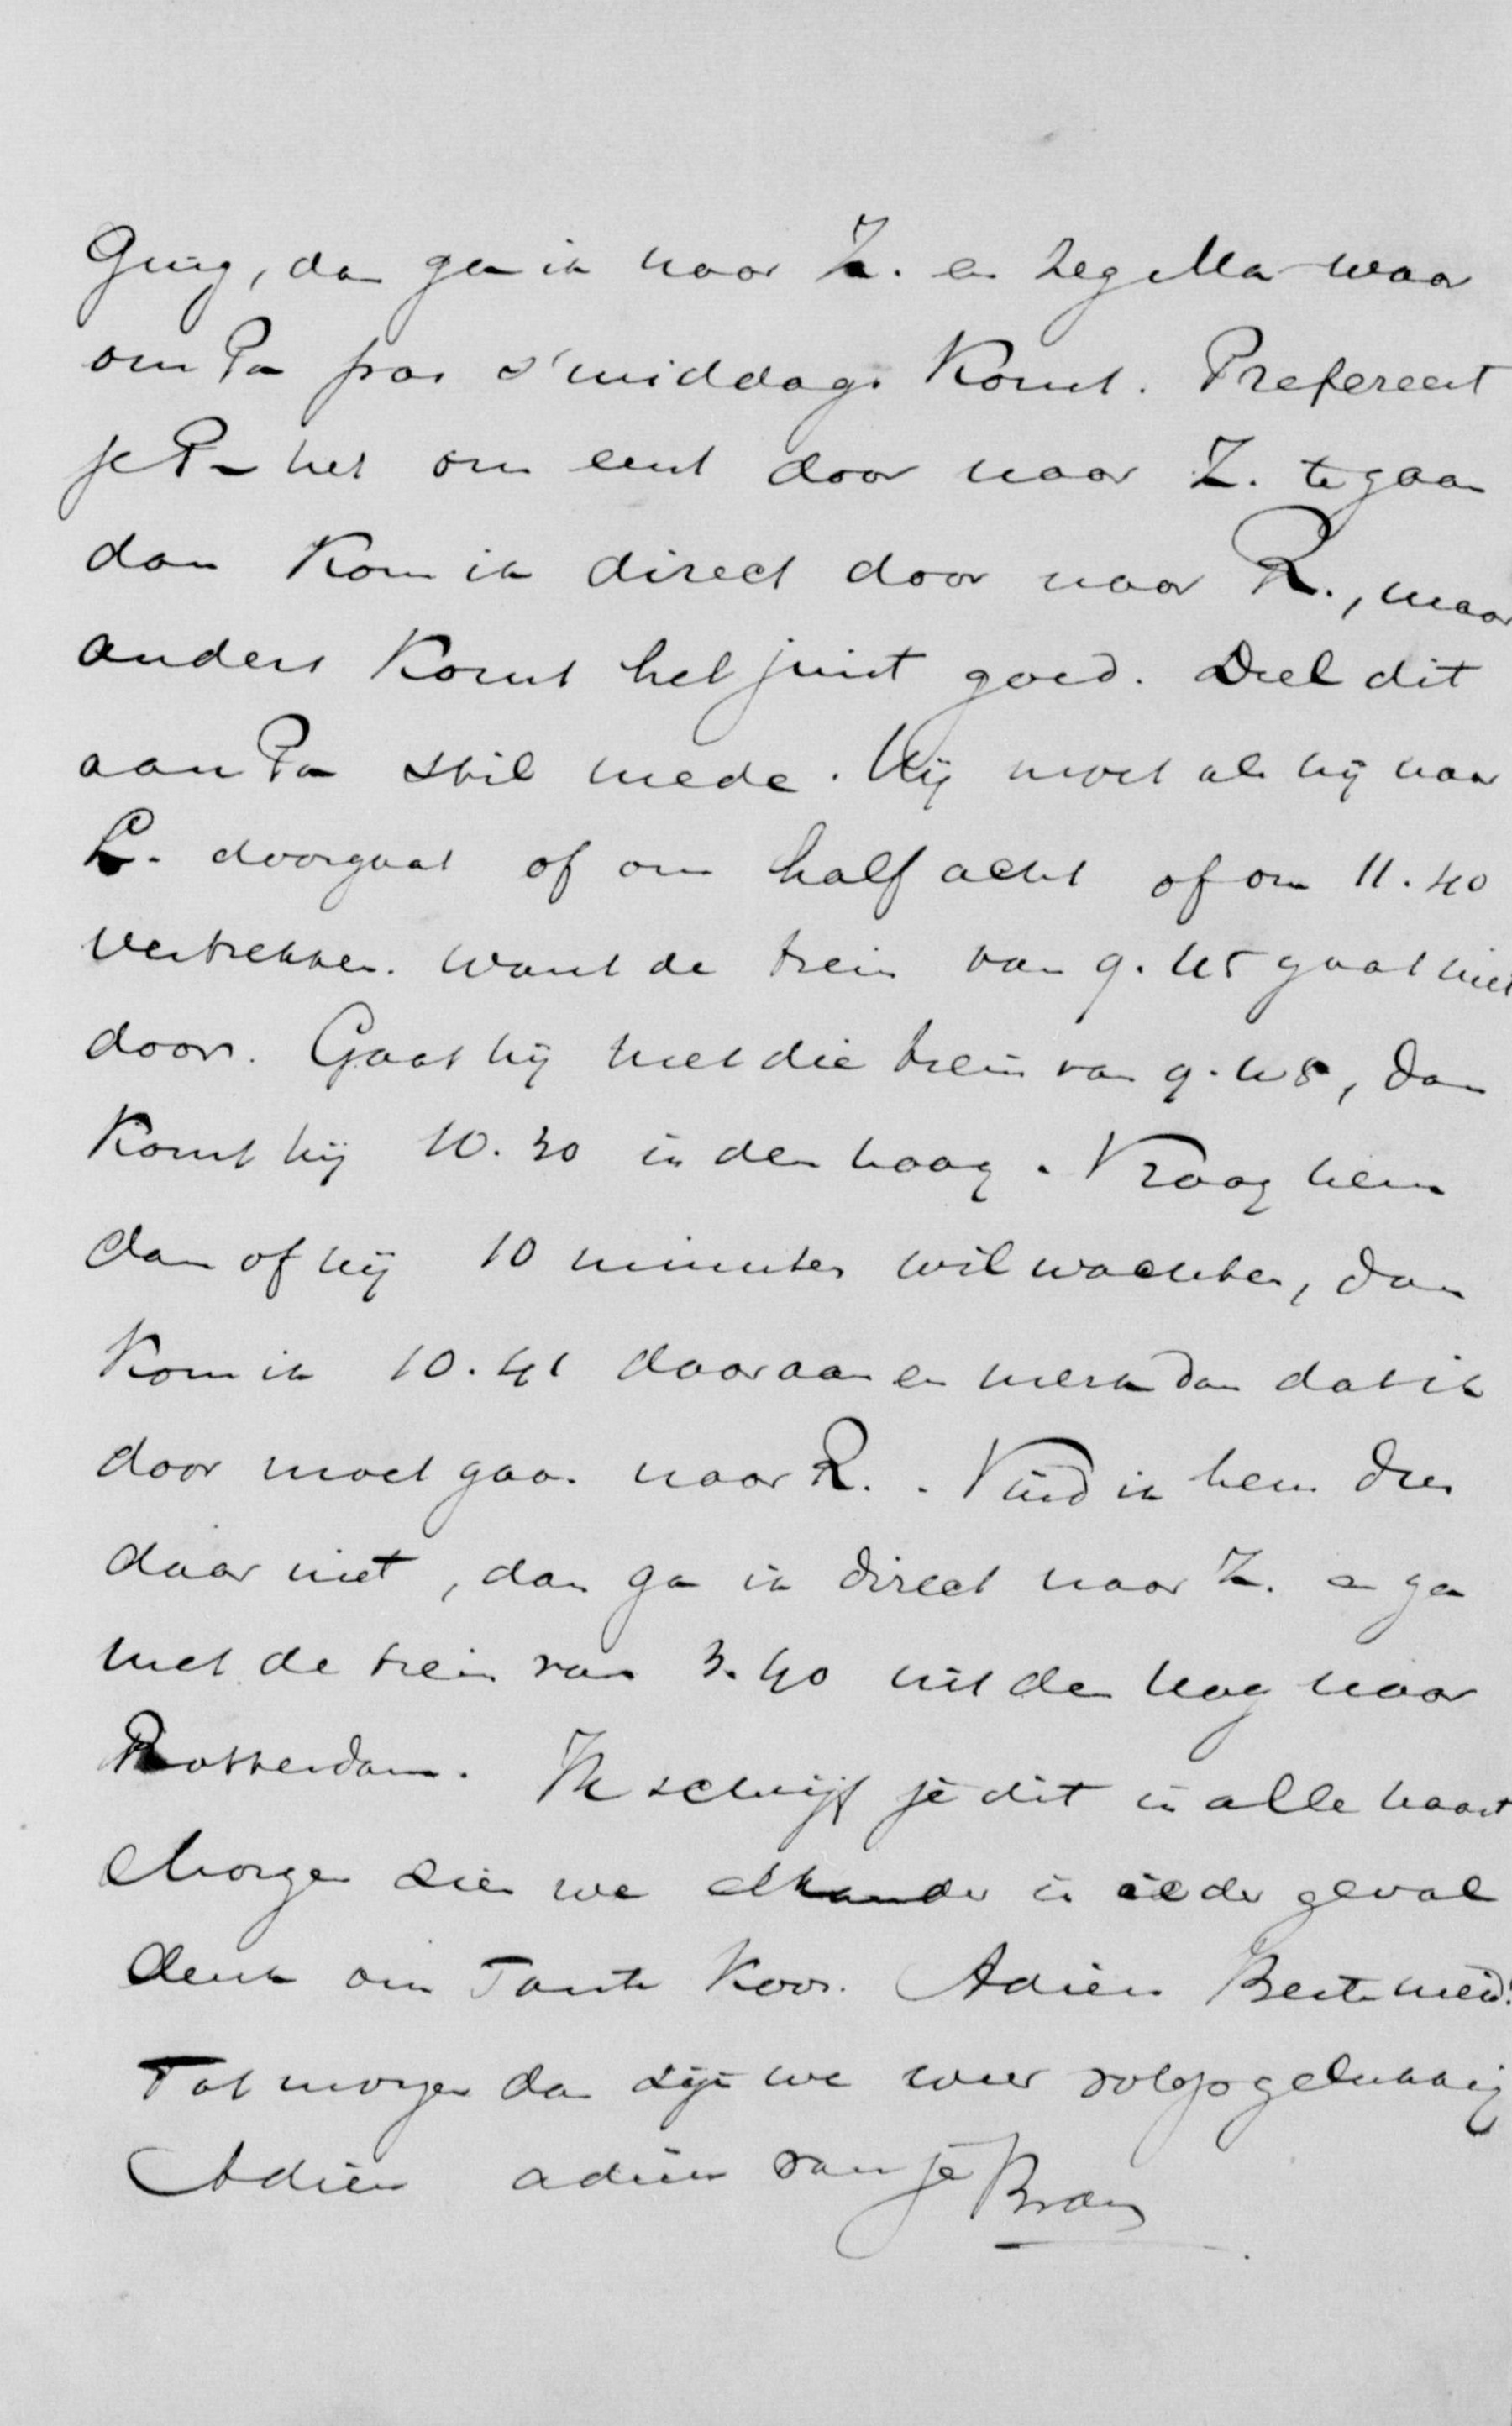 Ging, dan ga ik naar Z. en zeg Ma waar
om Pa pas s'middags komt. Prefereert
je Pa het om eerst door naar Z. te gaan
dan kom ik direct door naar R., maar
anders komt het juist goed. Deel dit
aan Pa stil mede. Hij moet als hij naar
Z. doorgaat of om half acht of om 11.40
vertrekken. Want de trein van 9.45 gaat niet
door. Gaat hij met die trein van 9.45, dan
komt hij 10.30 in den haag. Vraag hem
dan of hij 10 minuten wil wachten, dan
kom ik 10.41 daar aan en merk dan dat ik
door moet gaan naar R. . Vind ik hem dus
daar niet, dan ga ik direct naar Z. en ga
met de trein van 3.40 uit den hag naar
Rotterdam. Ik schrijf je dit in alle haast
Morgen zien we elkander in ieder geval
denk om Tante Koos. Adieu Beste meid!
Tot morgen dan zijn we weer volop gelukkig
Adieu adieu van je Bram